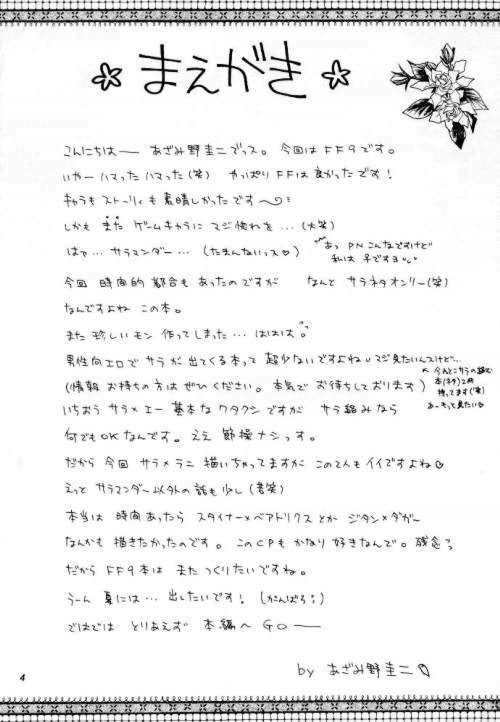 まえがき
こんにちはー あざみ野圭二でっス。今回はFF9です。
いやーハマったハマった(笑) やっぱりFFは良かったです!
キャラもストーリィも素晴しかったです〜
しかも また ゲームキャラに マジ惚れを…(火笑)
はァ… サラマンダー…(たまんないっス♡)
あっ PNこんなですけど
私は 子ですヨ
今回 時間的都合もあったのですが なんと サラネタオンリー(笑)
なんですよね この本。
また 珍しいモン 作ってしまった… ははは。
男性向エロで サラが出てくる本って 超少ないですよね マジ見たいんスけど…
(情報 お持ちの方は ぜひください。本気で お待ちしております)
今んとこサラの絡む
本(ネタ)2冊
持ってます(笑)
あーもっと見たい♡
いちおう サラ×エー 基本な ワタクシですが サラ絡みなら
何でもOKなんです。ええ 節操ナシっす。
だから 今回 サラ×ラニ 描いちゃってますが この2人も イイですよね♡
えっと サラマンダー以外の話も少し(苦笑)
本当は 時間あったら スタイナー×ベアトリクスとか ジタン×ダガー
なんかも 描きたかったのです。このCPも かなり好きなんで。残念
だから FF9本は また つくりたいですね。
うーん 夏には… 出したいです!(がんばろ)
ではでは とりあえず 本編へ GOー
by あざみ野圭二
4